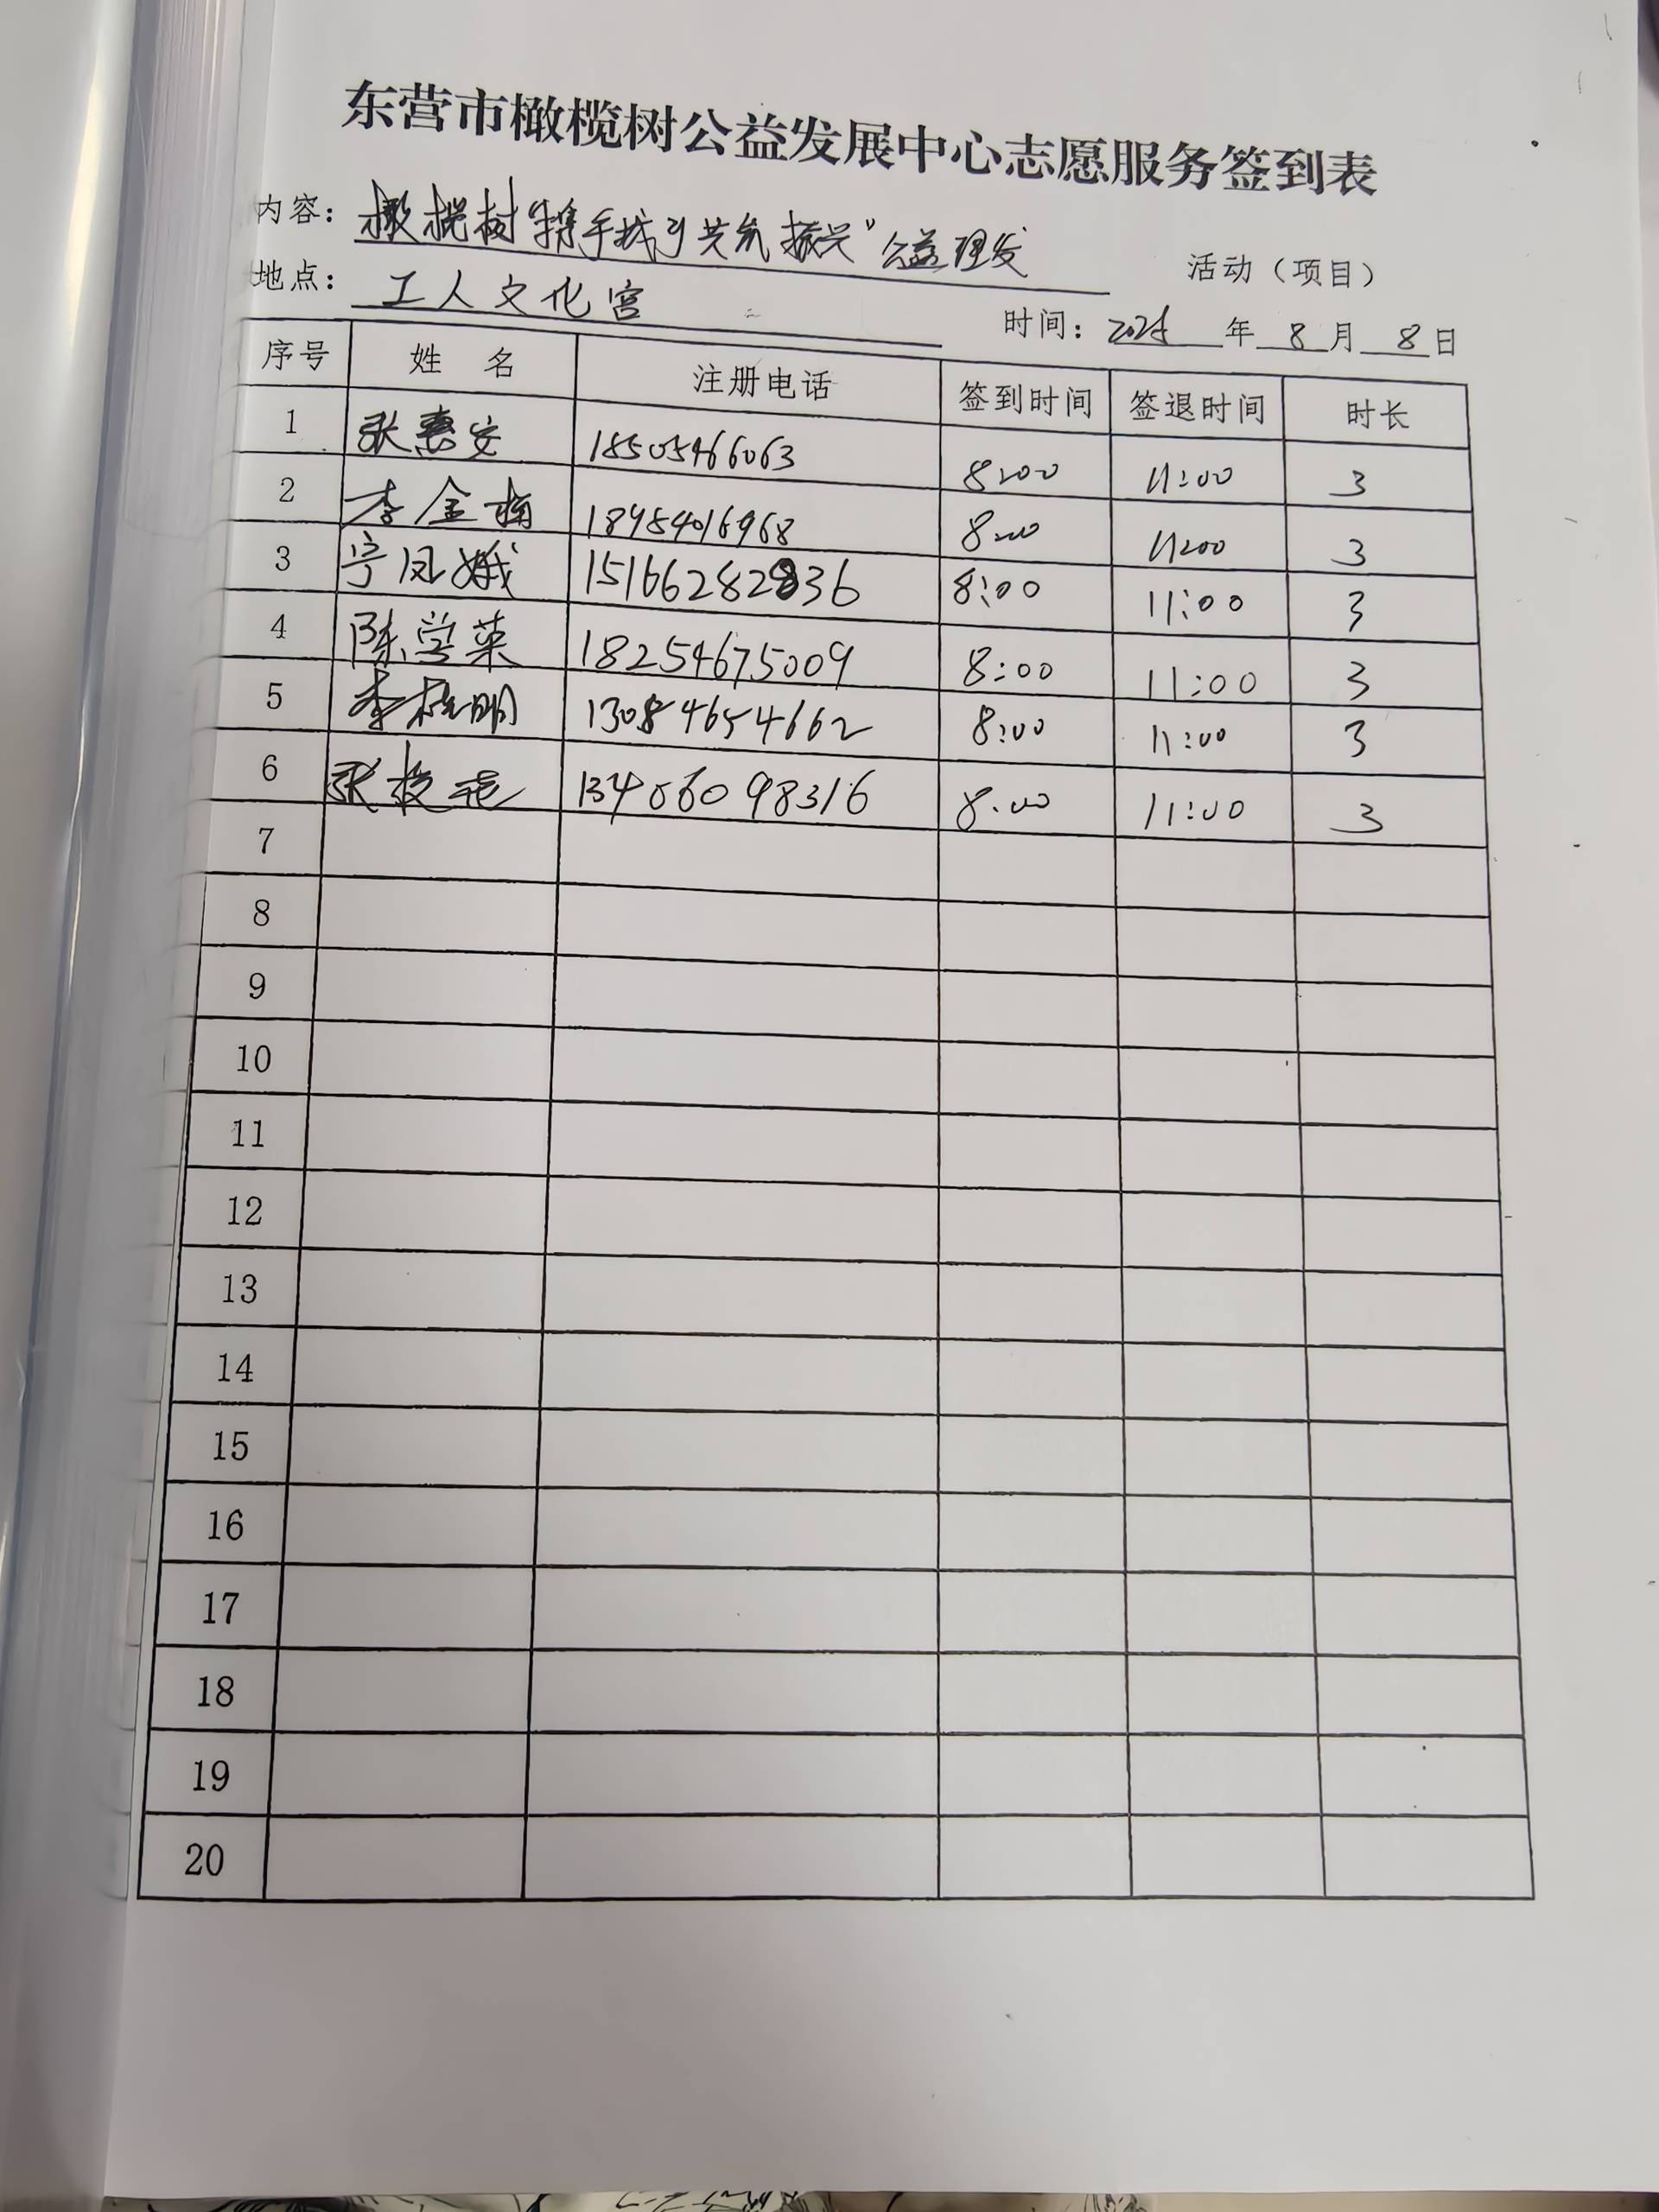 东营市橄榄树公益发展中心志愿服务签到表
内容：橄榄树“携手城乡共筑振兴”公益理发 活动（项目）
地点：工人文化宫
时间：2025年8月8日
序号 姓名 注册电话 签到时间 签退时间 时长
1 张惠安 18505466063 8:00 11:00 3
2 李金楠 18954016968 8:00 11:00 3
3 宁凤娥 15166282836 8:00 11:00 3
4 陈学荣 18254675009 8:00 11:00 3
5 李桂明 13084654662 8:00 11:00 3
6 张 13406098316 8:00 11:00 3
7
8
9
10
11
12
13
14
15
16
17
18
19
20